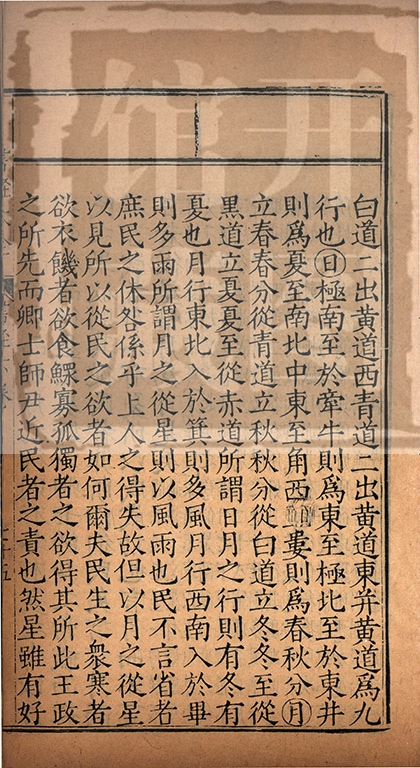 白道二出黄道西青道二出黄道東并黄道爲九
行也日極南至於牽牛則爲東至極北至於東井
則爲夏至南北中東至角西至婁則爲春秋分月
立春春分從青道立秋秋分從白道立冬冬至從
黒道立夏夏至從赤道所謂日月之行則有冬有
夏也月行東北入於箕則多風月行西南入於畢
則多雨所謂月之從星則以風雨也民不言省者
庶民之休咎係乎上人之得失故但以月之從星
以見所以從民之欲者如何爾夫民生之衆寒者
欲衣饑者欲食鰥寡孤獨者之欲得其所此王政
之所先而卿士師尹近民者之責也然星雖有好